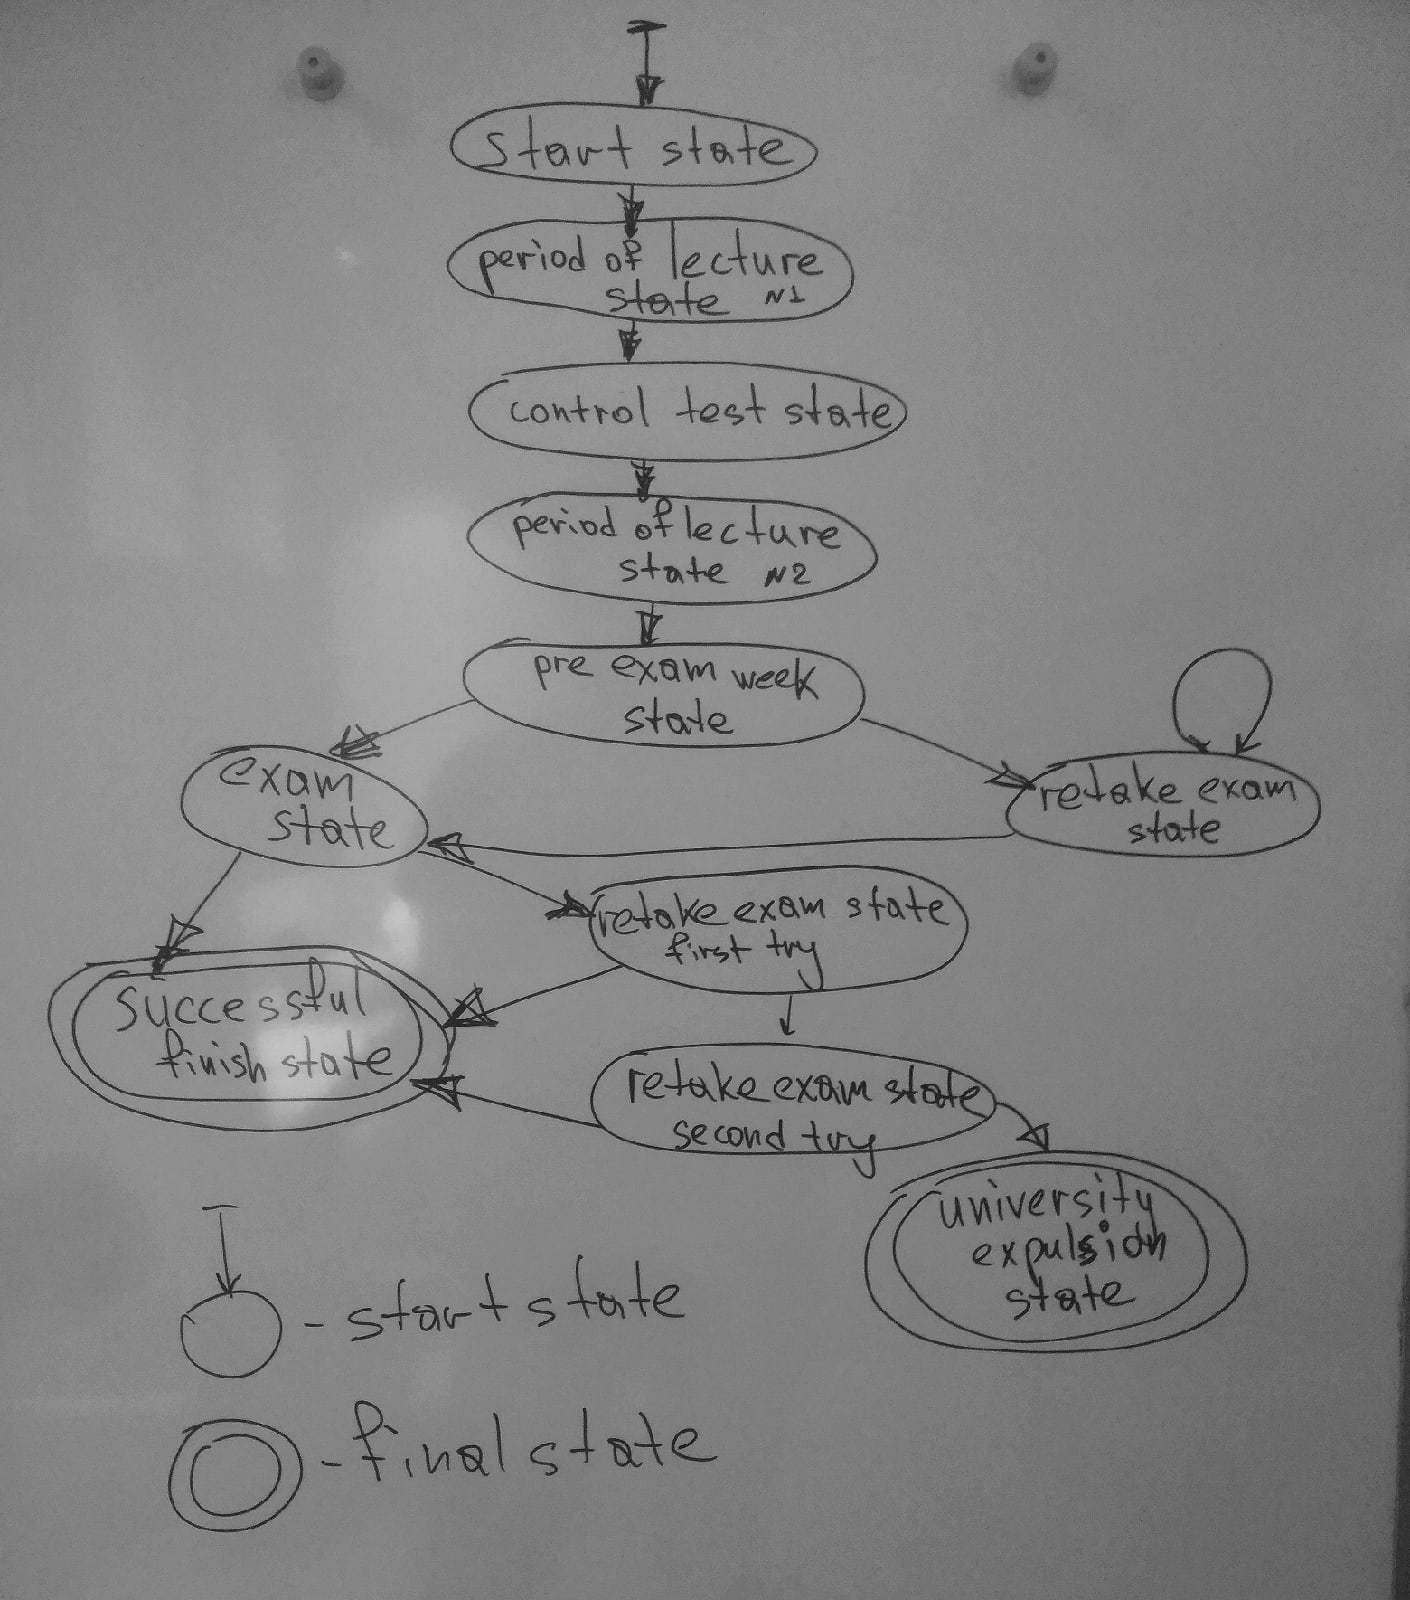 start state
period of lecture
state N1
control test state
period of lecture
state N2
pre exam week
state
exam
state
retake exam
state
retake exam state
first try
successful
finish state
retake exam state
second try
university
expulsion
state
- start state
- final state